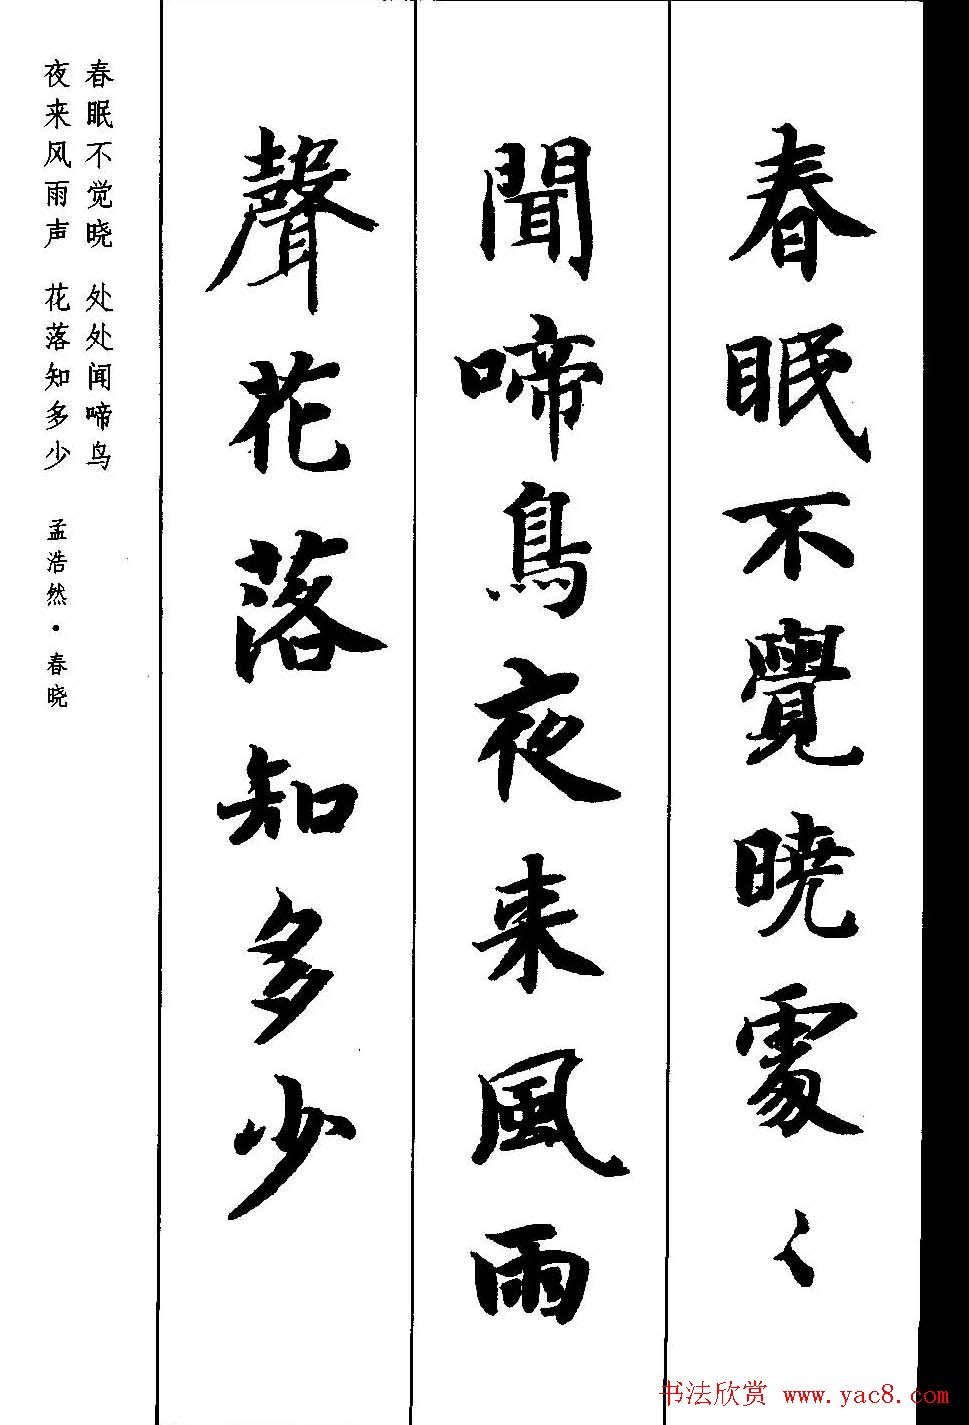 春眠不覺曉處々
聞啼鳥夜来風雨
聲花落知多少
春眠不觉晓 处处闻啼鸟
夜来风雨声 花落知多少 孟浩然·春晓
书法欣赏 www.yac8.com